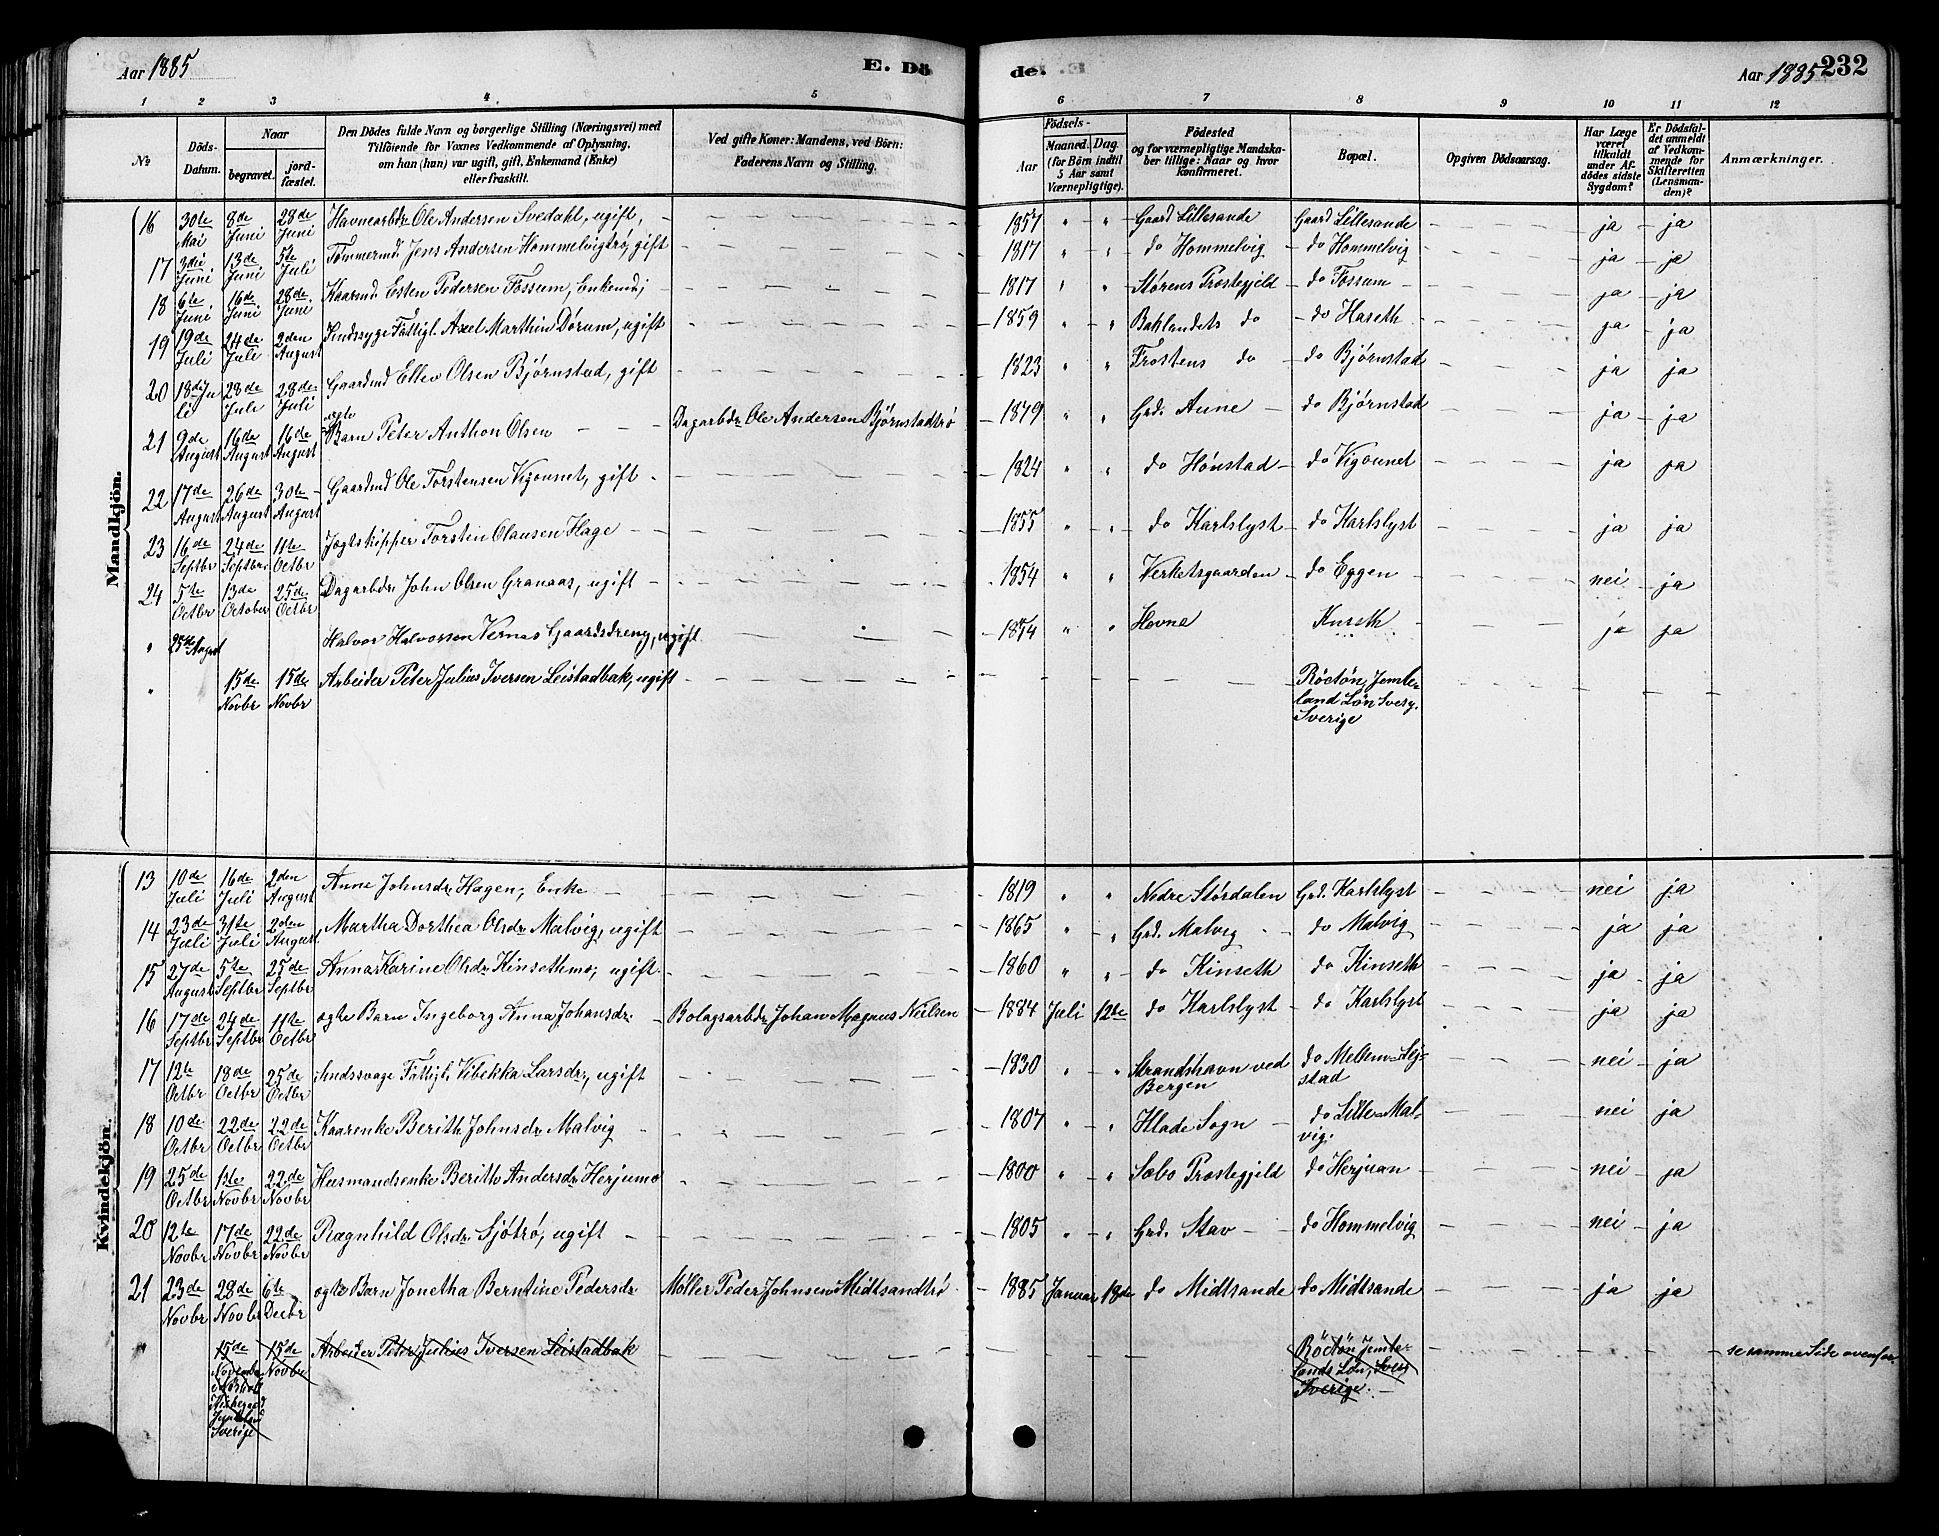 Aar 1885
E. Dö
de.
Aar 1885
232
1 2 3 4 5 6 7 8 9 10 11 12
No
Döds-Datum.
Naar
begravet.
jordfæstet.
Den Dödes fulde Navn og borgerlige Stilling (Næringsvei) med
Tilföiende for Voxnes Vedkommende af Oplysning.
om han (hun) var ugift, gift, Enkemand (Enke)
eller fraskilt.
Ved gifte Koner: Mandens, ved Börn:
Faderens Navn og Stilling.
Födsels-
Aar
Maaned. Dag.
(for Börn indtil
5 Aar samt
Værnepligtige).
Födested
og for værnepligtige Mandskaber tillige: Naar og hvor
konfirmeret.
Bopæl.
Opgiven Dödsaarsag.
Har Læge
været
tilkaldt
under Afdödes sidste
Sygdom?
Er Dödsfaldet anmeldt
af Vedkommende for
Skifteretten
(Lensmanden)?
Anmærkninger.
Mandkjön.
16 30te Mai 8de Juni 28de Juni Havnearbdr Ole Andersen Svedahl, ugift, 1857 " " Gaard Lillesande Gaard Lillesande ja ja
17 3die Juni 13de Juni 5te Juli Tømmermd Jens Andersen Hommelvigtrø, gift 1817 " " do Hommelvig do Hommelvig ja ja
18 6te Juni 16de Juni 28de Juni Kaarmd Esten Pedersen Fossum, Enkemd; 1817 " " Størens Præstegjeld do Fossum ja ja
19 19de Juli 24de Juli 2den August Sindssyge Fattigl. Axel Marthin Dørum, ugift 1859 " " Baklandets do do Haseth ja ja
20 18de Juli 28de Juli 28de Juli Gaardmd Ellev Olsen Bjørnstad, gift 1823 " " Frostens do do Bjørnstad ja ja
21 9de August 16de August 16de August ægte Barn Peter Anthon Olsen Dagarbdr Ole Andersen Bjørnstadtrø 1879 " " Grd. Aune do Bjørnstad ja ja
22 17de August 26de August 30te August Gaardmd Ole Torstensen Vigounet, gift 1824 " " do Hønstad do Vigounet ja ja
23 16de Septbr 24de Septbr 11te Octbr Jægtskipper Torsten Olausen Hage 1855 " " do Karlslyst do Karlslyst ja ja
24 5te Octbr 13de October 25de Octbr Dagarbdr John Olsen Granaas, ugift 1854 " " Verketsgaarden do Eggen nei ja
" 25de August Halvor Halvorsen Vernes Gaardsdreng, ugift " " Hovne Kurseth ja ja
" 15de Novbr 15de Novbr Arbeider Peter Julius Iversen Leistadbak, ugift Röctön, Jemteland Län Sverg. Sverige
Kvindekjön.
13 10de Juli 16de Juli 2den August Anne Johnsdr Hagen, Enke 1819 " " Nedre Størdalen Grd. Karlslyst nei ja
14 23de Juli 31te Juli 2den August Martha Dorthea Olsdr Malvig, ugift 1865 " " Grd. Malvig do Malvig ja ja
15 27de August 5te Septbr 25de Septbr Anna Karine Olsdr Kinsethmo, ugift 1860 " " do Kinseth do Kinseth ja ja
16 17de Septbr 24de Septbr 11te Octbr ægte Barn Ingeborg Anna Johansdr Bolagsarbdr Johan Magnus Neilsen 1884 Juli 12te do Karlslyst do Karlslyst ja ja
17 12te Octbr 18de Octbr 25de Octbr Sindssvage Fattigl. Vibekka Larsdr, ugift 1830 " " Strandshavn ved Bergen do Mellem-Leistad nei ja
18 10de Octbr 22de Octbr 22de Octbr Kaarenke Berith Johnsdr Malvig 1807 " " Hlade Sogn do Lille-Malvig. nei ja
19 25de Octbr 1ste Novbr 22de Novbr Husmandsenke Berith Andersdr Herjumo 1800 " " Sælbo Præstegjeld do Herjuan nei ja
20 12te Novbr 17de Novbr 22de Novbr Ragnhild Olsdr Sjøtrø, ugift 1805 " " Grd. Stav do Hommelvig nei ja
21 23de Novbr 28de Novbr 6te Decbr ægte Barn Jonetha Berntine Pedersdr Møller Peder Johnsen Midtsandtrø 1885 Januar 18de do Midtsande do Midtsande ja ja
" 15de 15de Novbr Arbeider Peter Julius Iversen Leistadbak Röctön Jemtelands Län, Sverige se samme Side ovenfor
Sverige